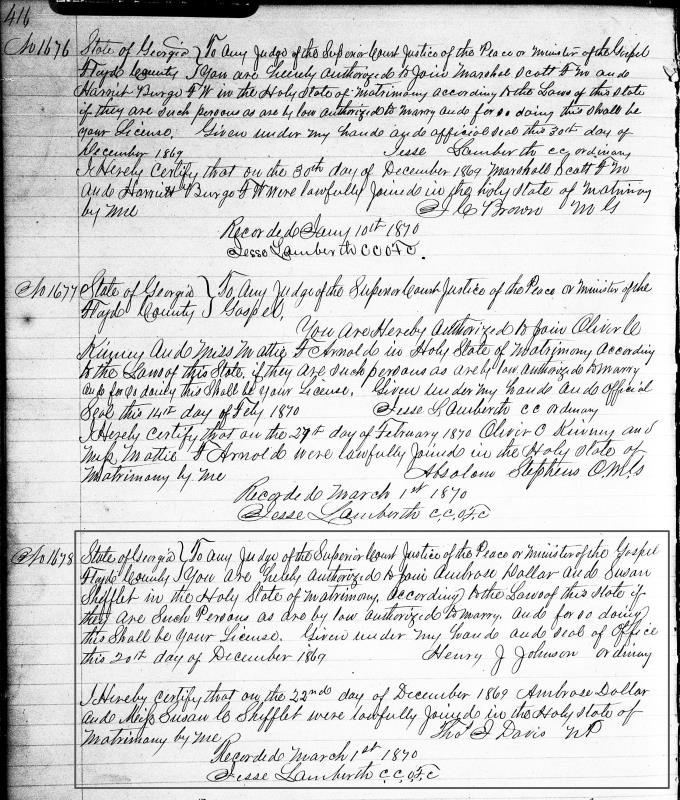 416
No 1676 State of Georgia } To Any Judge of the Superior Court Justice of the Peace or Minister of the Gospel
Floyd County } You are hereby Authorized to Join Marshal Scott F M and
Harriet Burge F W in the Holy State of Matrimony according to the Laws of this State
if they are such persons as are by law authorized to marry and for so doing this shall be
your License. Given under my hand and official seal this 30th day of
December 1869 Jesse Lamberth cc ordinary
I Hereby Certify that on the 30th day of December 1869 Marshall Scott F M
and Harriett Burge F W were lawfully Joined in the holy state of Matrimony
by me J C Brown M G
Recorded Jany 10th 1870
Jesse Lamberth C C O F C.
No 1677 State of Georgia } To Any Judge of the Superior Court Justice of the Peace or Minister of the
Floyd County } Gospel,
You Are Hereby Authorized to Join Oliver C
Kinney and Miss Mattie F Arnold in Holy State of Matrimony According
to the Laws of this State, if they are such persons as are by law authorized to marry
and for so doing this Shall be your License. Given under my hand and Official
Seal this 14th day of Feby 1870 Jesse Lamberth cc ordinary
I Hereby Certify that on the day of February 1870 Oliver C Kinney and
Miss Mattie F Arnold were lawfully Joined in the Holy State of
Matrimony by me Absolom Stephens O.M.G
Recorded March 1st 1870
Jesse Lamberth C.C.O.F.C
No 1678 State of Georgia } To Any Judge of the Superior Court Justice of the Peace or Minister of the Gospel
Floyd County } You Are hereby Authorized to Join Ambrose Dollar and Susan
Shifflet in the Holy State of Matrimony, According to the Laws of this State if
they are Such Persons as are by law authorized to Marry. and for so doing
this Shall be Your License. Given under my hand and seal of Office
this 20th day of December 1869 Henry J Johnson ordinary
I Hereby certify that on the 22nd day of December 1869 Ambrose Dollar
and Miss Susan C Shifflet were lawfully Joined in the Holy State of
Matrimony by me Thos J Davis N P
Recorded March 1st 1870
Jesse Lamberth C.C.O.F.C